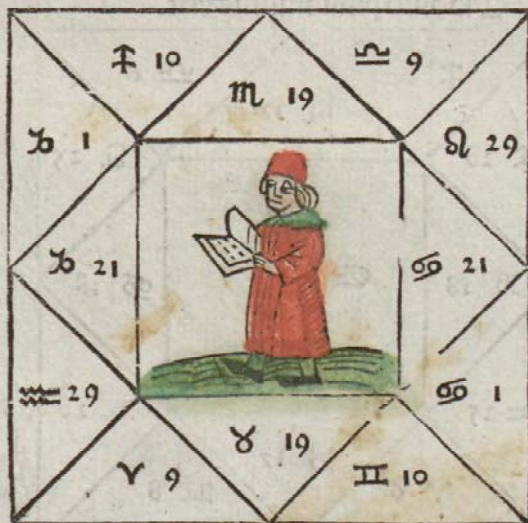 ♐ 10
♎ 9
♏ 19
♑ 1
♌ 29
♑ 21
♋ 21
♒ 29
♋ 1
♉ 19
♈ 9
♊ 10